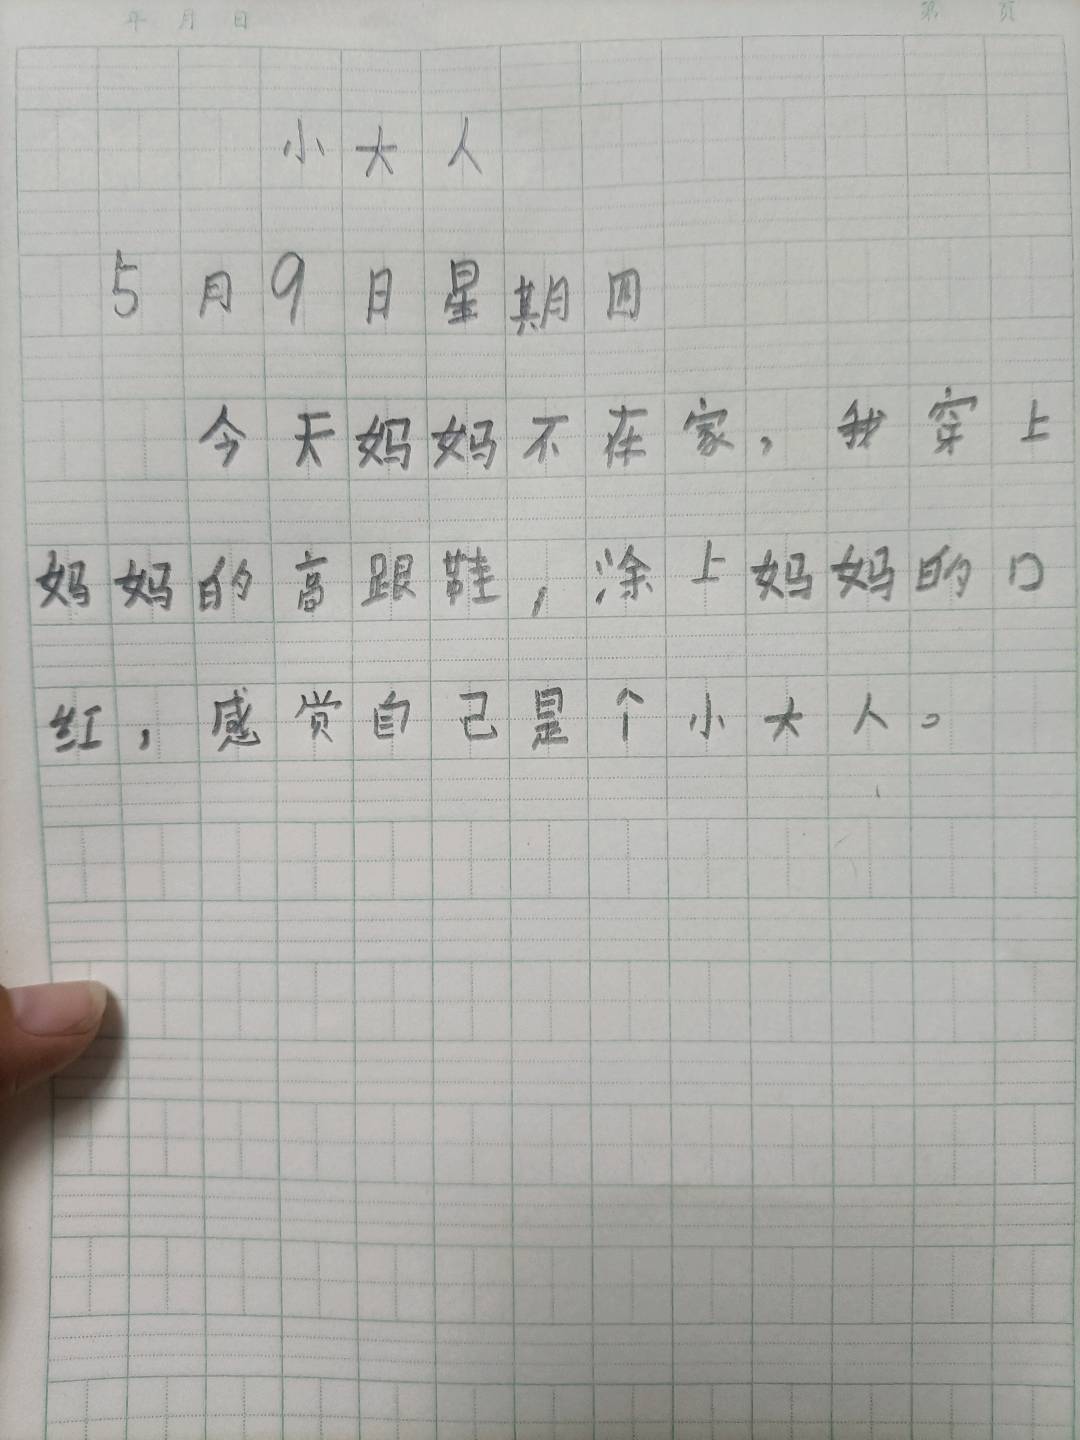 年 月 日 第 页
小大人
5月9日星期四
今天妈妈不在家，我穿上
妈妈的高跟鞋，涂上妈妈的口
红，感觉自己是个小大人。